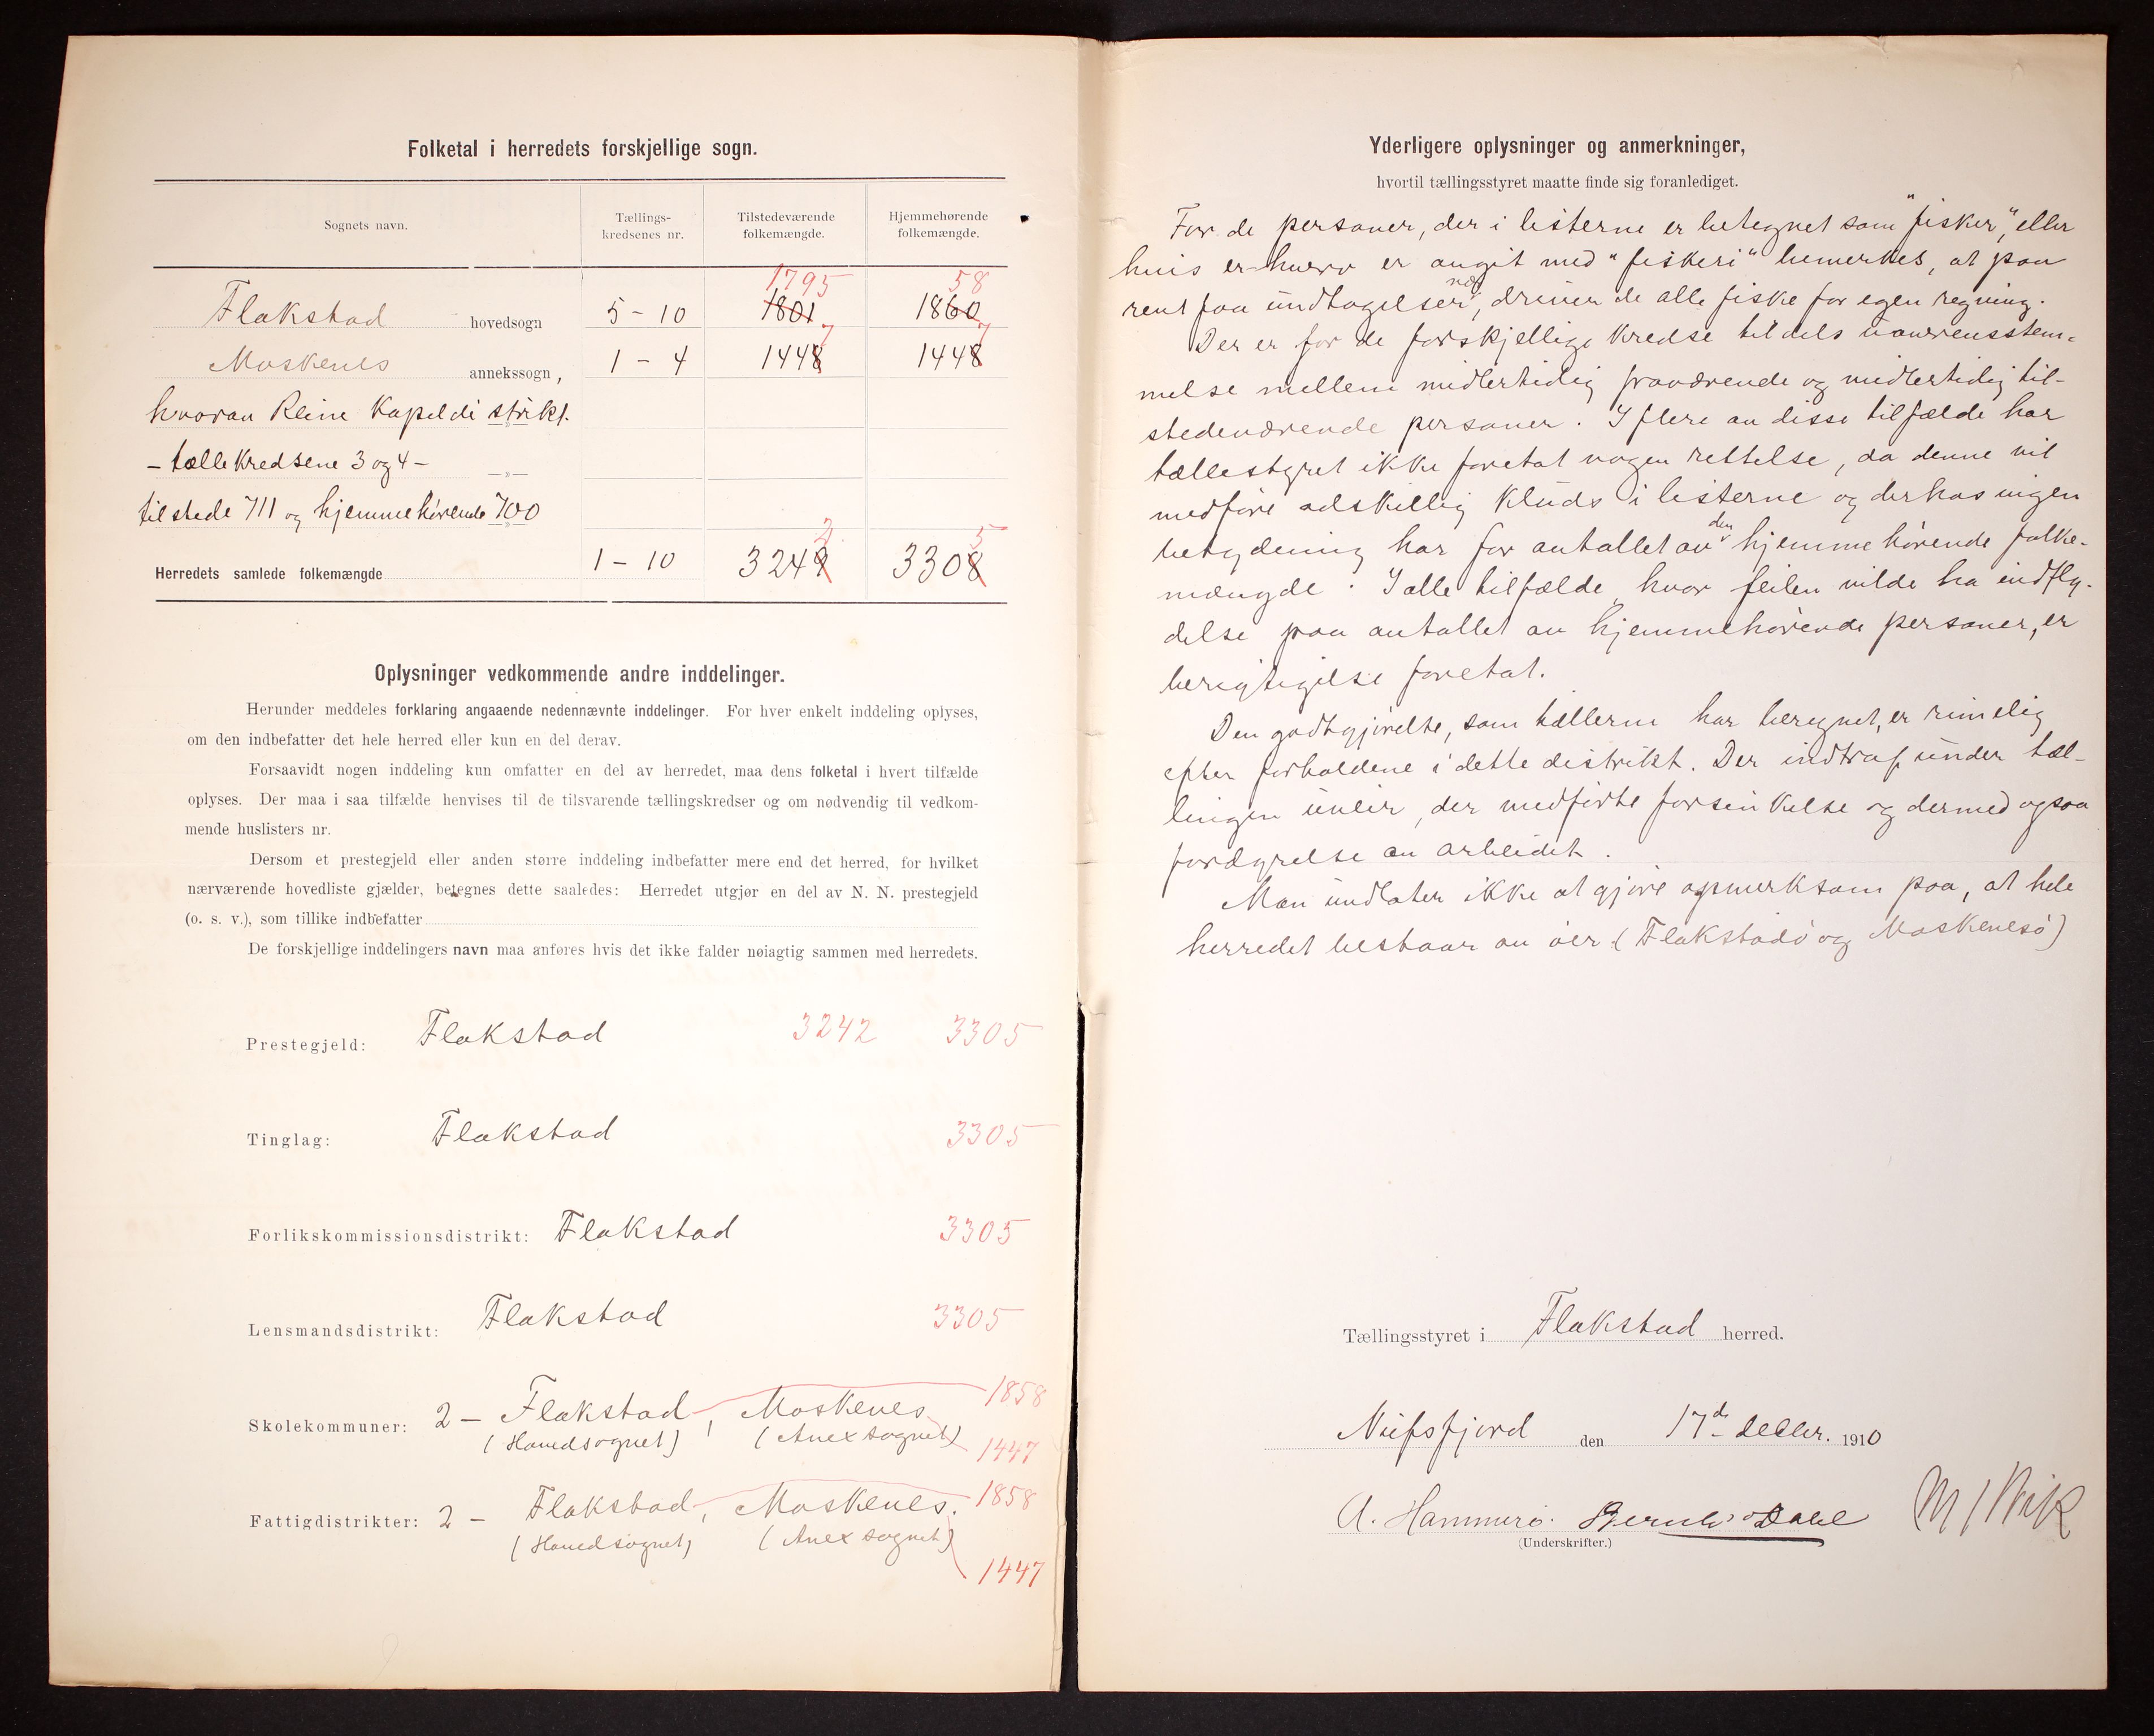 Folketal i herredets forskjellige sogn.
Sognets navn.
Tællings-
kredsenes nr.
Tilstedeværende
folkemængde.
Hjemmehørende
folkemængde.
1795
58
Flakstad hovedsogn 5 - 10 1801 1860
7 7
Moskenes annekssogn, 1 - 4 1448 1448
hvorav Reine Kapeldistrikt.
- tællekredsene 3 og 4 - -»-
tilstede 711 og hjemmehørende 700
2 5
Herredets samlede folkemængde 1 - 10 3249 3308
Oplysninger vedkommende andre inddelinger.
Herunder meddeles forklaring angaaende nedennævnte inddelinger. For hver enkelt inddeling oplyses,
om den indbefatter det hele herred eller kun en del derav.
Forsaavidt nogen inddeling kun omfatter en del av herredet, maa dens folketal i hvert tilfælde
oplyses. Der maa i saa tilfælde henvises til de tilsvarende tællingskredser og om nødvendig til vedkom-
mende huslisters nr.
Dersom et prestegjeld eller anden større inddeling indbefatter mere end det herred, for hvilket
nærværende hovedliste gjælder, betegnes dette saaledes: Herredet utgjør en del av N. N. prestegjeld
(o. s. v.), som tillike indbefatter
De forskjellige inddelingers navn maa anføres hvis det ikke falder nøiagtig sammen med herredets.
Prestegjeld: Flakstad 3242 3305
Tinglag: Flakstad 3305
Forlikskommissionsdistrikt: Flakstad 3305
Lensmandsdistrikt: Flakstad 3305
Skolekommuner: 2 - Flakstad, Moskenes 1858
(Hovedsognet) (Anexsognet) 1447
Fattigdistrikter: 2 - Flakstad, Moskenes. 1858
(Hovedsognet) (Anexsognet)
1447
Yderligere oplysninger og anmerkninger,
hvortil tællingsstyret maatte finde sig foranlediget.
For de personer, der i listerne er betegnet som "fisker", eller
hvis erhverv er angit med "fiskeri" bemerkes, at paa
rent faa undtagelser nær, driver de alle fiske for egen regning.
Der er for de forskjellige kredse tildels uoverensstem-
melse mellem midlertidig fraværende og midlertidig til-
stedeværende personer. I flere av disse tilfælde har
tællestyret ikke foretat nogen rettelse, da denne vil
medføre adskillig kluds i listerne og derhos ingen
betydning har for antallet av den hjemmehørende folke-
mængde. I alle tilfælde, hvor feilen vilde ha indfly-
delse paa antallet av hjemmehørende personer, er
berigtigelse foretat.
Den godtgjørelse, som tællerne har beregnet, er rimelig
efter forholdene i dette distrikt. Der indtraf under tæl-
lingen uveir, der medførte forsinkelse og dermed ogsaa
fordyrelse av arbeidet.
Man undlater ikke at gjøre opmerksom paa, at hele
herredet bestaar av øer (Flakstadø og Moskenesø)
Tællingsstyret i Flakstad herred.
Nufsfjord den 17de decbr. 1910
A. Hammerø. Bernh. Dahl
(Underskrifter.)